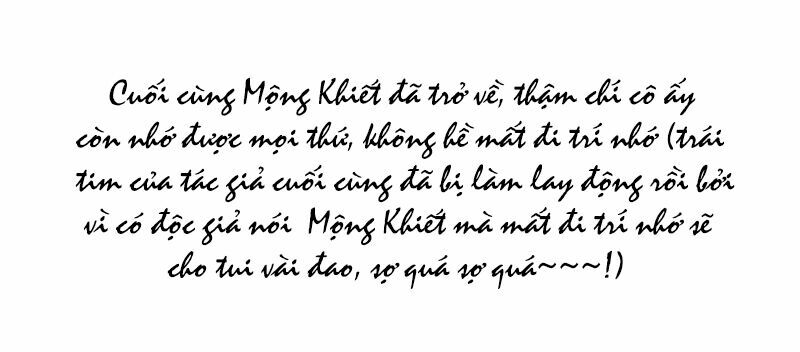 Cuối cùng Mộng Khiết đã trở về, thậm chí cô ấy
còn nhớ được mọi thứ, không hề mất đi trí nhớ (trái
tim của tác giả cuối cùng đã bị làm lay động rồi bởi
vì có độc giả nói Mộng Khiết mà mất đi trí nhớ sẽ
cho tui vài đao, sợ quá sợ quá~~~!)